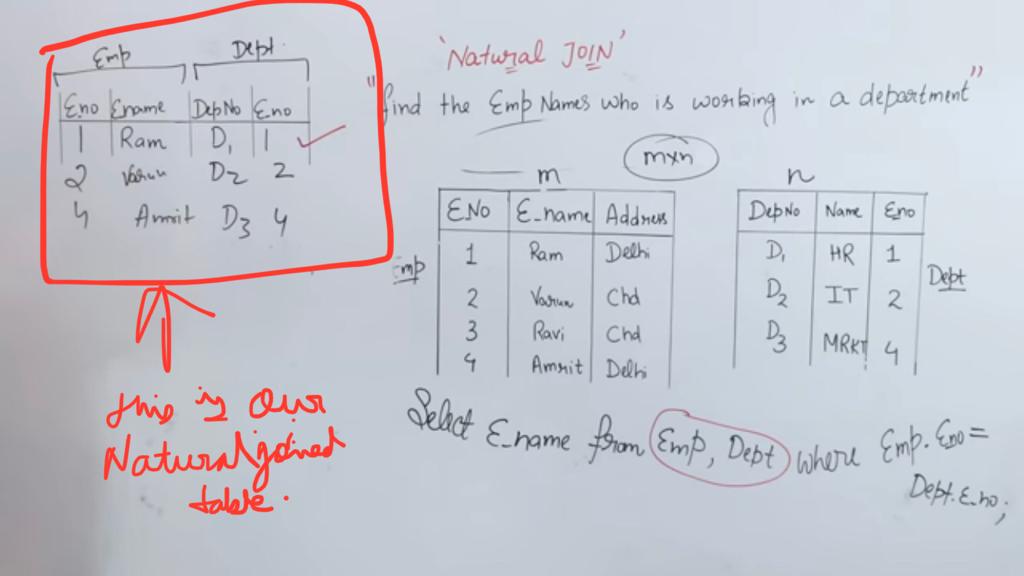 Emp Dept.
Eno Ename DepNo Eno
1 Ram D1 1
2 Varun D2 2
4 Amrit D3 4
this is our
Natural joined
table.
'Natural JOIN'
"find the Emp Names who is working in a department"
m×n
m
n
E.No E_name Address
1 Ram Delhi
2 Varun Chd
3 Ravi Chd
4 Amrit Delhi
Emp
DepNo Name Eno
D1 HR 1
D2 IT 2
D3 MRKT 4
Dept
Select E_name from Emp, Dept where Emp. Eno =
Dept. E_no;